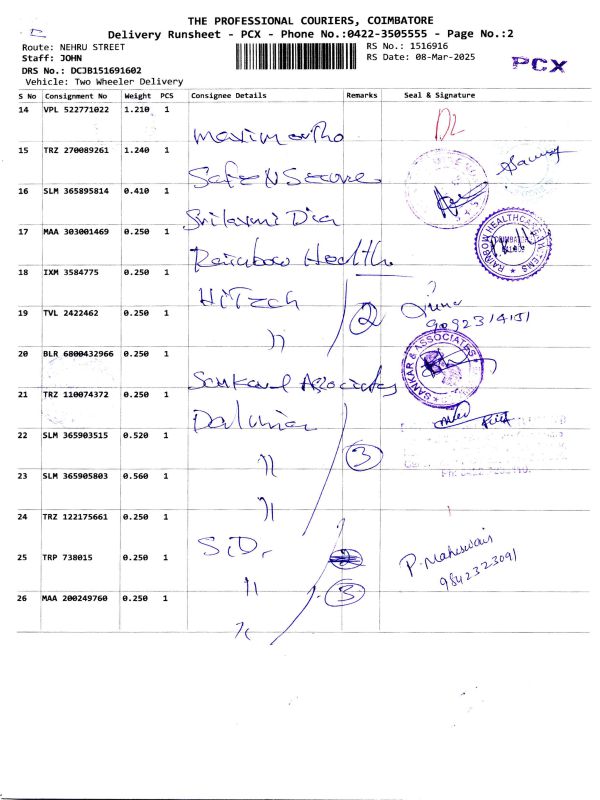 THE PROFESSIONAL COURIERS, COIMBATORE
Delivery Runsheet - PCX - Phone No.:0422-3505555 - Page No.:2
Route: NEHRU STREET
RS No.: 1516916
Staff: JOHN
RS Date: 08-Mar-2025
DRS No.: DCJB151691602
PCX
Vehicle: Two Wheeler Delivery
S No Consignment No Weight PCS Consignee Details Remarks Seal & Signature
14 VPL 522771022 1.210 1
DL
15 TRZ 270089261 1.240 1
Safe N Secure
16 SLM 365895814 0.410 1
Srilaxmi Dia
17 MAA 303001469 0.250 1
Rainbow Health
RAINBOW HEALTHCARE SYSTEMS
18 IXM 3584775 0.250 1
HiTech
2
9092314151
19 TVL 2422462 0.250 1
〃
20 BLR 6800432966 0.250 1
Sankar Associates
SANKAR & ASSOCIATES
21 TRZ 110074372 0.250 1
Dalmia
22 SLM 365903515 0.520 1
〃
3
23 SLM 365905803 0.560 1
〃
24 TRZ 122175661 0.250 1
25 TRP 738015 0.250 1
〃
P. Maheswari
9842323091
26 MAA 200249760 0.250 1
3
〃